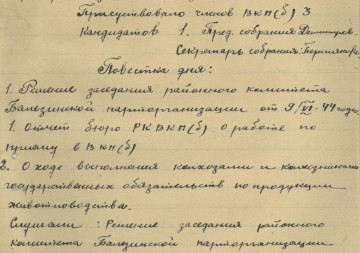 Присутствовало членов ВКП(б) 3
Кандидатов 1. Пред. собрания
Секретарь собрания:
Повестка дня:
1. Решение заседания районного комитета
Балезинской парторганизации от 9/VI-44 года
1. Отчет бюро РК ВКП(б) о работе по
приему в ВКП(б)
2. О ходе выполнения колхозами и колхозниками
государственных обязательств по продукции
животноводства.
Слушали: Решение заседания районного
комитета Балезинской парторганизации